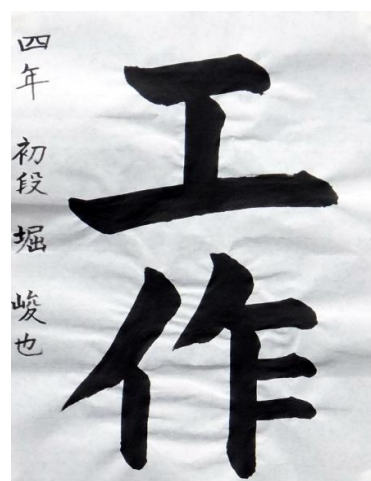 工作
四年 初段 堀 峻也